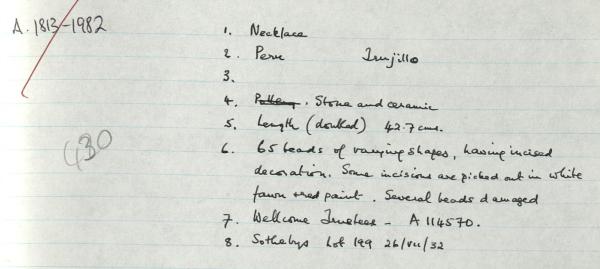 A. 1813-1982
1. Necklace
2. Peru Trujillo
3.
4. Pottery. Stone and ceramic
5. Length (doubled) 42.7 cms.
6. 65 beads of varying shapes, having incised
decoration. Some incisions are picked out in white
fawn + red paint. Several beads damaged
7. Wellcome Trustees - A 114570.
8. Sothebys Lot 199 26/VII/32
430